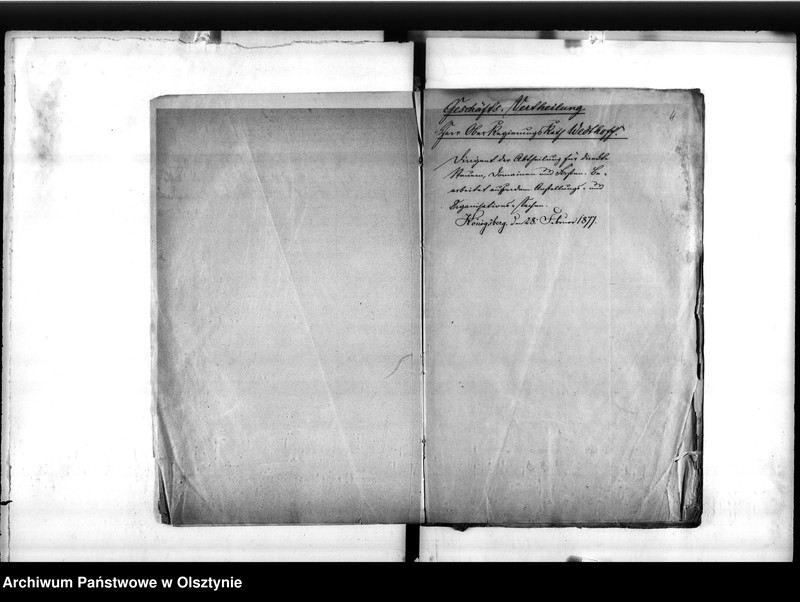 4
Geschäfts-Vertheilung.
Herr Ober Regierungs Rath Wedthoff.
Dirigent der Abtheilung für direkte
Steuern, Domainen und Forsten. Be-
arbeitet außerdem Anstellungs- und
Organisations-Sachen.
Königsberg, den 28. Februar 1877.
Archiwum Państwowe w Olsztynie